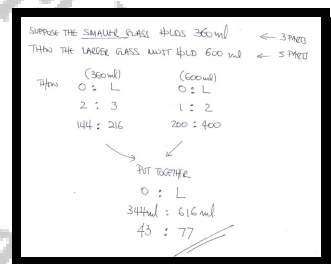 SUPPOSE THE SMALLER GLASS HOLDS 360ml ← 3 PARTS
THEN THE LARGER GLASS MUST HOLD 600 ml ← 5 PARTS
(360ml) (600ml)
THEN O : L O : L
2 : 3 1 : 2
144 : 216 200 : 400
PUT TOGETHER
O : L
344ml : 616ml
43 : 77